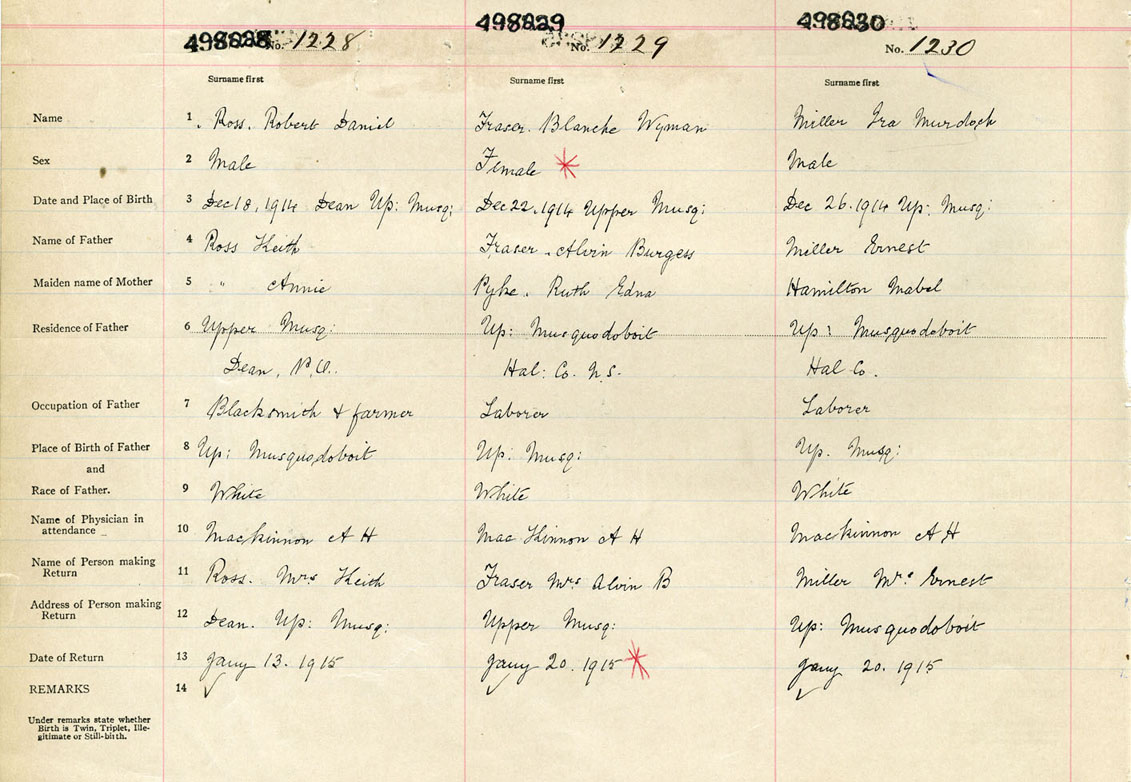 498228 498229 498230
No. 1228 No. 1229 No. 1230
Surname first Surname first Surname first
Name 1 Ross. Robert Daniel Fraser. Blanche Wyman Miller Ira Murdoch
Sex 2 Male Female Male
Date and Place of Birth 3 Dec 18, 1914 Dean Up: Musq: Dec 22. 1914 Upper Musq: Dec 26. 1914 Up: Musq:
Name of Father 4 Ross Keith Fraser. Alvin Burgess Miller Ernest
Maiden name of Mother 5 " Annie Pyke. Ruth Edna Hamilton Mabel
Residence of Father 6 Upper Musq: Up: Musquodoboit Up: Musquodoboit
Dean, P.O. Hal: Co. N.S. Hal Co.
Occupation of Father 7 Blacksmith & farmer Laborer Laborer
Place of Birth of Father 8 Up: Musquodoboit Up: Musq: Up. Musq:
and
Race of Father. 9 White White White
Name of Physician in
attendance 10 Mackinnon A H MacKinnon A H Mackinnon A H
Name of Person making
Return 11 Ross. Mrs Keith Fraser Mrs Alvin B Miller Mrs Ernest
Address of Person making
Return 12 Dean. Up: Musq: Upper Musq: Up: Musquodoboit
Date of Return 13 Jany 13. 1915 Jany 20. 1915 Jany 20. 1915
REMARKS 14
Under remarks state whether
Birth is Twin, Triplet, Ille-
gitimate or Still-birth.